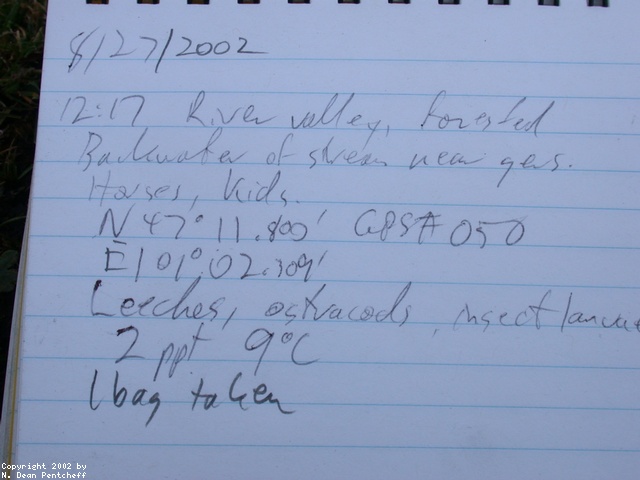 8/27/2002
12:17 River valley, forested
Backwater of stream near gers.
Horses, kids.
N 47° 11.800' GPS# 050
E 101° 02.309'
Leeches, ostracods, insect larvae
2 ppt 9°C
1 bag taken
Copyright 2002 by
N. Dean Pentcheff